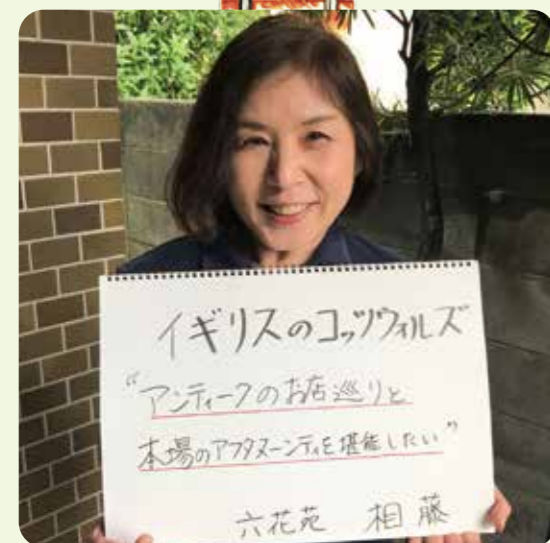 イギリスのコッツウォルズ
“アンティークのお店巡りと
本場のアフタヌーンティを堪能したい”
六花苑 相藤